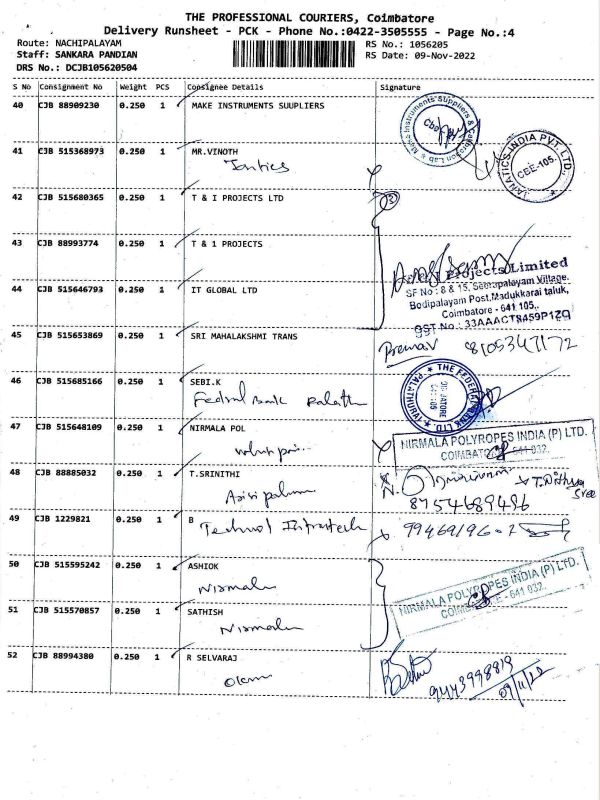 THE PROFESSIONAL COURIERS, Coimbatore
Delivery Runsheet - PCK - Phone No.:0422-3505555 - Page No.:4
Route: NACHIPALAYAM
RS No.: 1056205
Staff: SANKARA PANDIAN
RS Date: 09-Nov-2022
DRS No.: DCJB105620504
S No Consignment No Weight PCS Consignee Details Signature
40 CJB 88909230 0.250 1 MAKE INSTRUMENTS SUUPLIERS
41 CJB 515368973 0.250 1 MR.VINOTH
JANATICS INDIA PVT. LTD.
CBE-105.
42 CJB 515680365 0.250 1 T & I PROJECTS LTD
43 CJB 88993774 0.250 1 T & 1 PROJECTS
I Projects Limited
SF No : 8 & 15, Seerapalayam Village,
44 CJB 515646793 0.250 1 IT GLOBAL LTD
Bodipalayam Post, Madukkarai taluk,
Coimbatore - 641 105.
GST No.: 33AAACT8459P1ZQ
45 CJB 515653869 0.250 1 SRI MAHALAKSHMI TRANS
8105347172
46 CJB 515685166 0.250 1 SEBI.K
Federal Bank
THE FEDERAL BANK LTD.
47 CJB 515648109 0.250 1 NIRMALA POL
NIRMALA POLYROPES INDIA (P) LTD.
COIMBATORE - 641 032.
48 CJB 88885032 0.250 1 T.SRINITHI
8754689486
49 CJB 1229821 0.250 1 B
50 CJB 515595242 0.250 1 ASHIOK
Nirmala
NIRMALA POLYROPES INDIA (P) LTD.
COIMBATORE - 641 032.
51 CJB 515570857 0.250 1 SATHISH
Nirmala
52 CJB 88994380 0.250 1 R SELVARAJ
9443998819
09/11/22